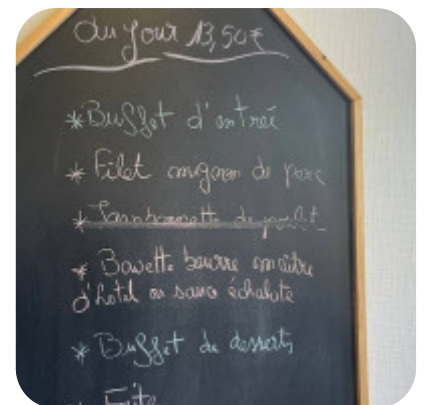 du jour 13,50€
* Buffet d'entrée
* Filet mignon de porc
* Jambonnette de poulet
* Bavette beurre maître
d'hotel ou sauce échalote
* Buffet de desserts
* Frite